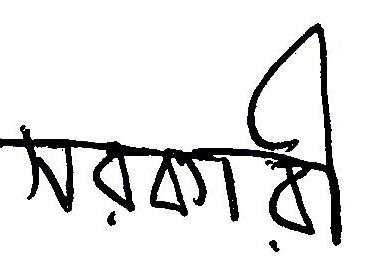 সরকারী